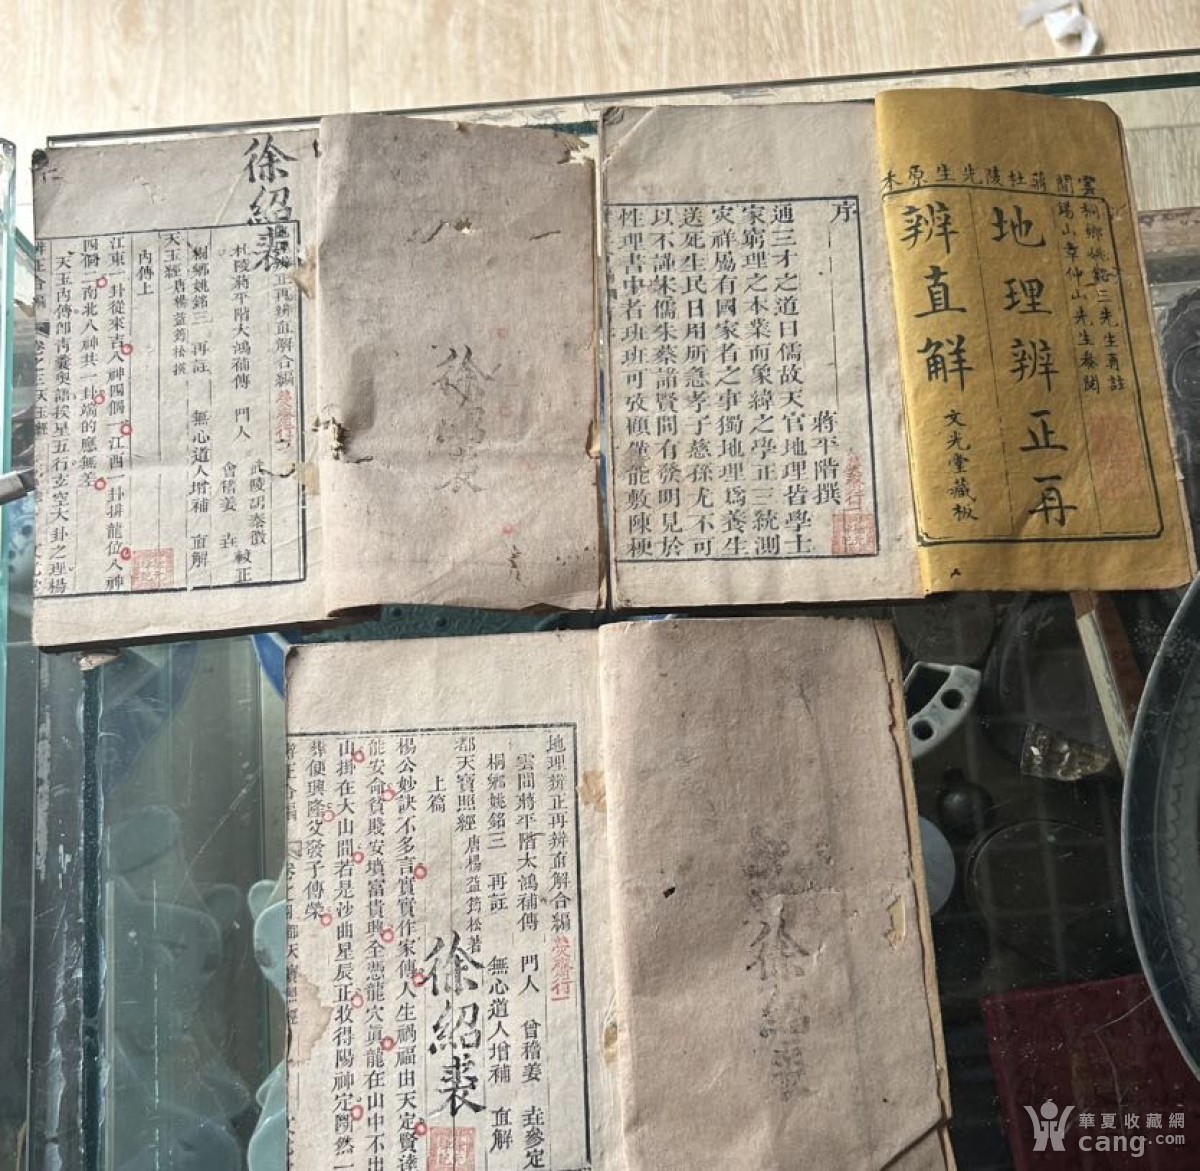 雲間蔣杜陵先生原本
桐鄉姚銘三先生再註
錫山章仲山先生參閱
地理辨正再
辨直解
文光堂藏板
序
蔣平階撰
通三才之道曰儒故天官地理皆學士
家窮理之本業而象緯之學正三統測
災祥屬有國家者之事獨地理為養生
送死生民日用所急孝子慈孫尤不可
以不謹宋儒朱蔡諸賢間有發明見於
性理書中者班班可攷顧僅能敷陳梗
徐紹裘
正再辨直解合編
杜陵蔣平階大鴻補傳
門人
武陵胡泰徵
會稽姜垚
較正
桐鄉姚銘三
再註
無心道人增補
直解
天玉經唐楊益筠松撰
內傳上
江東一卦從來吉八神四個一江西一卦排龍位八神
四個二南北八神共一卦端的應無差
天玉內傳即青囊奧語挨星五行玄空大卦之理楊
徐紹裘
地理辨正再辨直解合編
雲間蔣平階大鴻補傳
門人
會稽姜
垚參定
桐鄉姚銘三
再註
無心道人增補
直解
都天寶照經唐楊益筠松著
上篇
徐紹裘
楊公妙訣不多言實實作家傳人生禍福由天定賢達
能安命貧賤安墳富貴興全憑龍穴真龍在山中不出
山掛在大山間若是沙曲星辰正收得陽神定斷然一
葬便興隆父發子傳榮
徐紹裘
華夏收藏網
cang.com